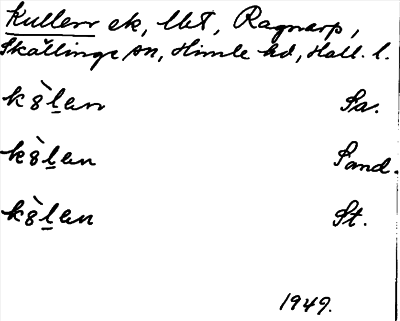 Kullen ek, Ut, Ragnarp,
Skällinge sn, Himle hd, Hall. l.
k8̀l̲an Sa.
k8̀l̲an Sand.
k8̀l̲an St.
1949.